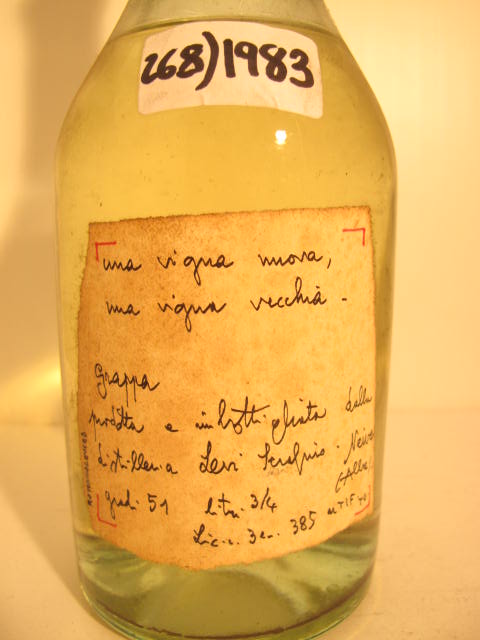 268)1983
una vigna nuova,
una vigna vecchia -
Grappa
prodotta e imbottigliata dalla
distilleria Levi Serafino - Neive
(Alba)
gradi 51 litri 3/4
Lic. 385 UTIF